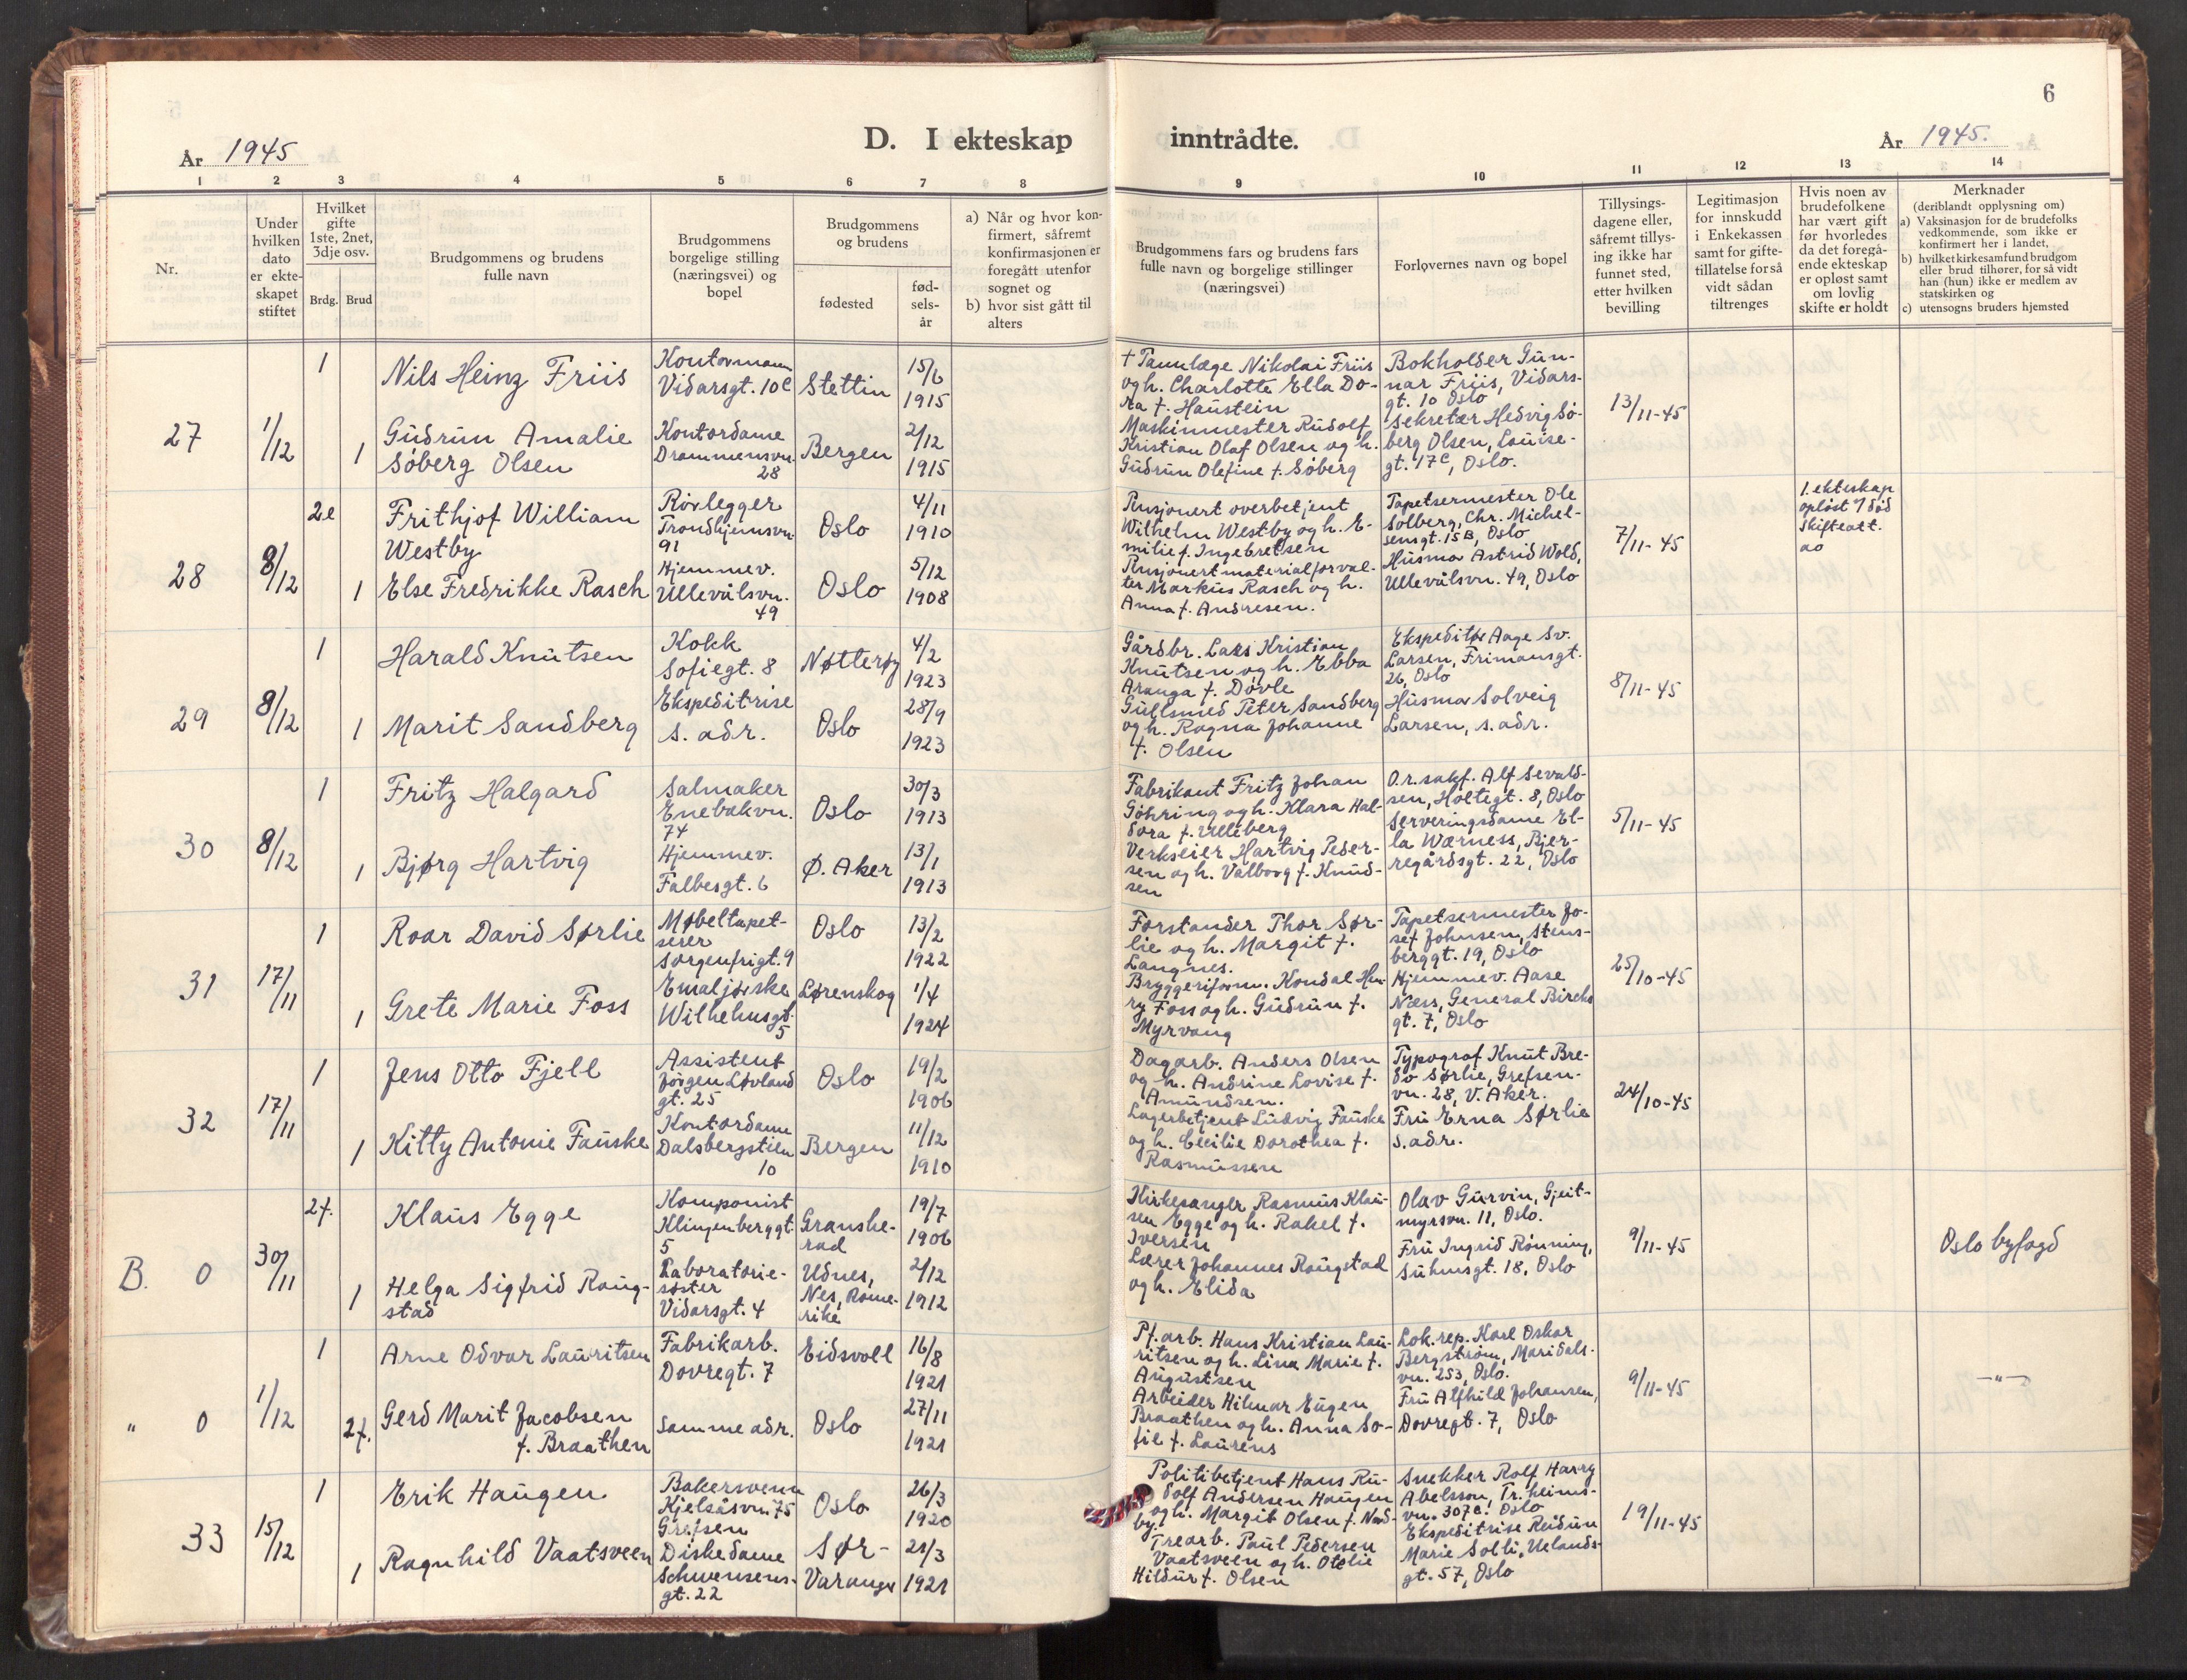 6
D. I ekteskap inntrådte.
År 1945
År 1945.
1 2 3 4 5 6 7 8 9 10 11 12 13 14
Nr.
Under
hvilken
dato
er ekte-
skapet
stiftet
Hvilket
gifte
1ste, 2net,
3dje osv.
Brdg. Brud
Brudgommens og brudens
fulle navn
Brudgommens
borgelige stilling
(næringsvei) og
bopel
Brudgommens
og brudens
fødested
fød-
sels-
år
a) Når og hvor kon-
firmert, såfremt
konfirmasjonen er
foregått utenfor
sognet og
b) hvor sist gått til
alters
Brudgommens fars og brudens fars
fulle navn og borgelige stillinger
(næringsvei)
Forlovernes navn og bopel
Tillysings-
dagene eller,
såfremt tillys-
ing ikke har
funnet sted,
etter hvilken
bevilling
Legitimasjon
for innskudd
i Enkekassen
samt for gifte-
tillatelse for så
vidt sådan
tiltrenges
Hvis noen av
brudefolkene
har vært gift
før hvorledes
da det foregå-
ende ekteskap
er opløst samt
om lovlig
skifte er holdt
Merknader
(deriblandt opplysning om)
a) Vaksinasjon for de brudefolks
vedkommende, som ikke er
konfirmert her i landet,
b) hvilket kirkesamfund brudgom
eller brud tilhører, for så vidt
han (hun) ikke er medlem av
statskirken og
c) utensogns bruders hjemsted
27
1/12
1
Nils Heinz Friis
Kontormann
Vidarsgt. 10c
Stettin
15/6
1915
1
Gudrun Amalie
Søberg Olsen
Kontordame
Drammensvn.
28
Bergen
2/12
1915
+ Tannlæge Nikolai Friis
og h. Charlotte Ella Do-
ra f. Haustein
Maskinmester Rudolf
Kristian Olaf Olsen og h.
Gudrun Olefine f. Søberg
Bokholder Gun-
nar Friis, Vidars-
gt. 10 Oslo
Sekretær Hedvig Sø-
berg Olsen, Louise-
gt. 17c, Oslo.
13/11-45
28
8/12
2e
Frithjof William
Westby
Rørlegger
Trondhjemsvn.
91
Oslo
4/11
1910
1
Else Fredrikke Rasch
Hjemmev.
Ullevålsvn.
49
Oslo
5/12
1908
Pensjonert overbetjent
Wilhelm Westby og h. E-
milie f. Ingebretsen
Pensjonert materialforval-
ter Markus Rasch og h.
Anna f. Andresen.
Tapetsermester Ole
Solberg, Chr. Michel-
sensgt. 15B, Oslo
Husmor Astrid Wold,
Ullevålsvn. 49, Oslo
7/11-45
1. ekteskap
opløst v/ død
Skifteatt.
ao
29
8/12
1
Harald Knutsen
Kokk
Sofiegt. 8
Nøtterøy
4/2
1923
1
Marit Sandberg
Ekspeditrise
s. adr.
Oslo
28/9
1923
Gårdbr. Lars Kristian
Knutsen og h. Ebba
Aranga f. Døvle
Gullsmed Peter Sandberg
og h. Ragna Johanne
f. Olsen
Ekspeditør Aage Sv.
Larsen, Frimansgt.
26, Oslo
Husmor Solveig
Larsen, s. adr.
8/11-45
30
8/12
1
Fritz Halgard
Salmaker
Enebakvn.
74
Oslo
30/3
1913
1
Bjørg Hartvig
Hjemmev.
Falbesgt. 6
Ø. Aker
13/1
1913
Fabrikant Fritz Johan
Göhring og h. Klara Hal-
dora f. Ulleberg
Verkseier Hartvig Peder-
sen og h. Valborg f. Knud-
sen
O.r.sakf. Alf Sevald-
sen, Holtegt. 8, Oslo
Serveringsdame El-
la Wærness, Bjer-
regårdsgt. 22, Oslo
5/11-45
31
17/11
1
Roar David Sørlie
Møbeltapet-
serer
Sorgenfrigt. 9
Oslo
13/2
1922
1
Grete Marie Foss
Emaljørske
Wilhelmsgt.
5
Lørenskog
1/4
1924
Forstander Thor Sør-
lie og h. Margit f.
Langnes.
Bryggeriform. Kondal Hen-
ry Foss og h. Gudrun f.
Myrvang
Tapetsermester Jo-
sef Johnsen, Stens-
berggt. 19, Oslo
Hjemmev. Aase
Næss, General Birchs
gt. 7, Oslo
25/10-45
32
17/11
1
Jens Otto Fjell
Assistent
Jörgen Løvland
gt. 25
Oslo
19/2
1906
1
Kitty Antonie Fauske
Kontordame
Dalsbergstien
10
Bergen
11/12
1910
Dagarb. Anders Olsen
og h. Andrine Lovise f.
Amundsen.
Lagerbetjent Ludvig Fauske
og h. Cecilie Dorothea f.
Rasmussen
Typograf Knut Bre-
do Sørlie, Grefsen-
vn. 28, V. Aker.
Fru Erna Sørlie
s. adr.
24/10-45
B. 0
30/11
2f.
Klaus Egge
Komponist
Klingenberggt.
5
Granshe-
rad
19/7
1906
1
Helga Sigfrid Raug-
stad
Laboratorie-
søster
Vidarsgt. 4
Udnes,
Nes, Rome-
rike
2/12
1912
Kirkesanger Rasmus Klau-
sen Egge og h. Rakel f.
Iversen
Lærer Johannes Raugstad
og h. Elida
Olav Gurvin, Gjeit-
myrsvn. 11, Oslo.
Fru Ingrid Rønning,
Suhmsgt. 18, Oslo
9/11-45
Oslo byfogd
" 0
1/12
1
Arne Odvar Lauritsen
Fabrikarb.
Dovregt. 7
Eidsvoll
16/8
1921
2f.
Gerd Marit Jacobsen
f. Braathen
Samme adr.
Oslo
27/11
1921
Pf. arb. Hans Kristian Lau-
ritsen og h. Lina Marie f.
Augustsen
Arbeider Hilmar Eugen
Braathen og h. Anna So-
fie f. Laurens
Lok.rep. Karl Oskar
Bergstrøm, Maridals-
vn. 253, Oslo.
Fru Alfhild Johansen,
Dovregt. 7, Oslo
9/11-45
—"—
33
15/12
1
Erik Haugen
Bakersvenn
Kjelsåsvn. 75
Grefsen
Oslo
26/3
1920
1
Ragnhild Vaatsveen
Diskedame
Schwensens-
gt. 22
Sør-
Varanger
21/3
1921
Politibetjent Hans Ru-
dolf Andersen Haugen
og h. Margit Olsen f. Nord-
by.
Trearb. Paul Pedersen
Vaatsveen og h. Otelie
Hildur f. Olsen
Snekker Rolf Harry
Abelsson, Tr. heims-
vn. 307c. Oslo
Ekspeditrise Reidun
Marie Solli, Uelands-
gt. 57, Oslo
19/11-45